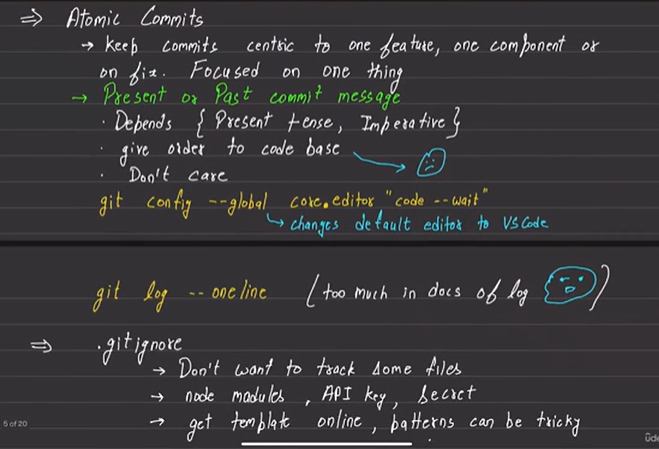 ⇒ Atomic Commits
→ keep commits centric to one feature, one component or
on fix. Focused on one thing
→ Present or Past commit message
· Depends { Present tense, Imperative }
· give order to code base
· Don't care
git config --global core.editor "code --wait"
↳ changes default editor to VSCode
git log --oneline (too much in docs of log )
⇒ .gitignore
→ Don't want to track some files
→ node modules, API key, Secret
→ get template online, patterns can be tricky
5 of 20
ûde